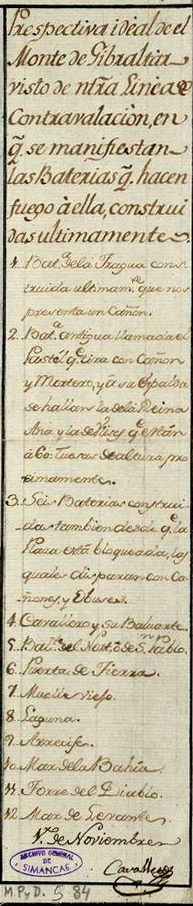 Prespectiva ideal de el
Monte de Gibraltar
visto de ntra Linea de
Contravalacion, en
q. se manifiestan
las Baterias q. hacen
fuego à ella, construi
das ultimamente
1. Bat.a de la Fragua cons-
truida ultimam.te que nos
presenta un Cañon.
2. Bat.a antigua llamada el
Pastel q.e tira con Cañon
y Mortero, y à su Espalda
se hallan la de la Reina
Ana y la de q.e están
à 60. tuesas de altura pro
ximamente.
3. Seis Baterias construi-
das tambien desde q.e la
Plaza está bloqueada, las
quales disparan con Ca
ñones, y Obuses.
4. Cavallero y su Baluarte.
5. Bat.a del Nort.e de S.n Pablo.
6. Puerta de Tierra.
7. Muelle viejo.
8. Laguna.
9. Arrecife.
10. Mar de la Bahia.
11. Torre del Diablo.
12. Mar de Levante.
1.ro de Noviembre
Cavallero
ARCHIVO GENERAL
DE
SIMANCAS
M.P.y D. 5-84